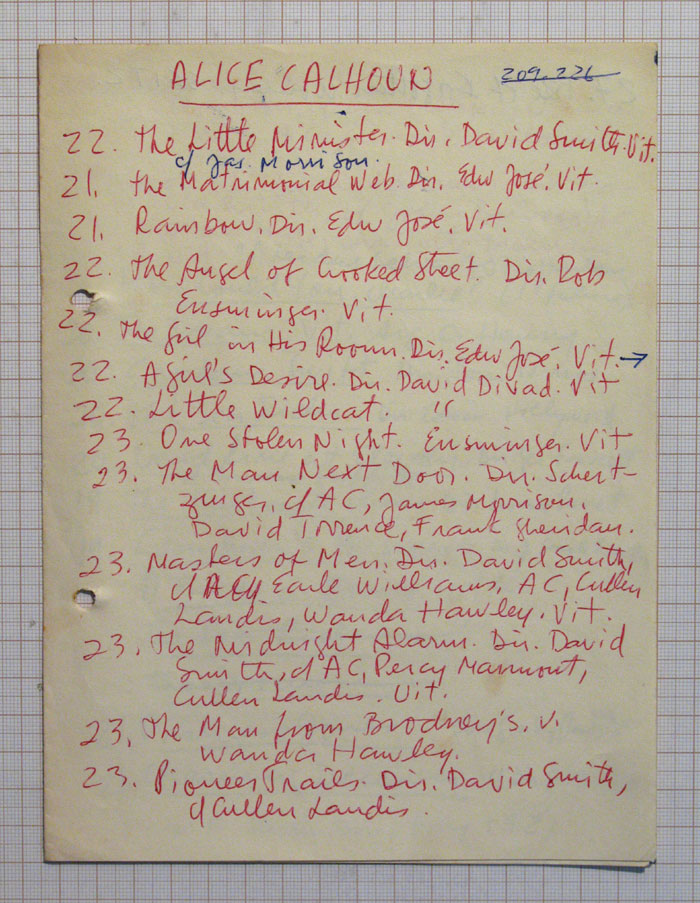 ALICE CALHOUN 209.226
22. The Little Minister. Dir. David Smith. Vit.
c/ Jas. Morrison.
21. The Matrimonial Web. Dir. Edw José. Vit.
21. Rainbow. Dir. Edw José. Vit.
22. The Angel of Crooked Street. Dir. Rob
Ensminger. Vit.
22. The Girl in His Room. Dir. Edw José. Vit. →
22. A Girl's Desire. Dir. David Divad. Vit
22. Little Wildcat. "
23. One Stolen Night. Ensminger. Vit
23. The Man Next Door. Dir. Schert-
zinger. c/ AC, James Morrison.
David Torrence, Frank Sheridan.
23. Masters of Men. Dir. David Smith,
c/ Earle Williams, AC, Cullen
Landis, Wanda Hawley. Vit.
23. The Midnight Alarm. Dir. David
Smith, c/ AC, Percy Marmont,
Cullen Landis. Vit.
23. The Man from Brodney's. V.
Wanda Hawley.
23. Pioneer Trails. Dir. David Smith,
c/ Cullen Landis.